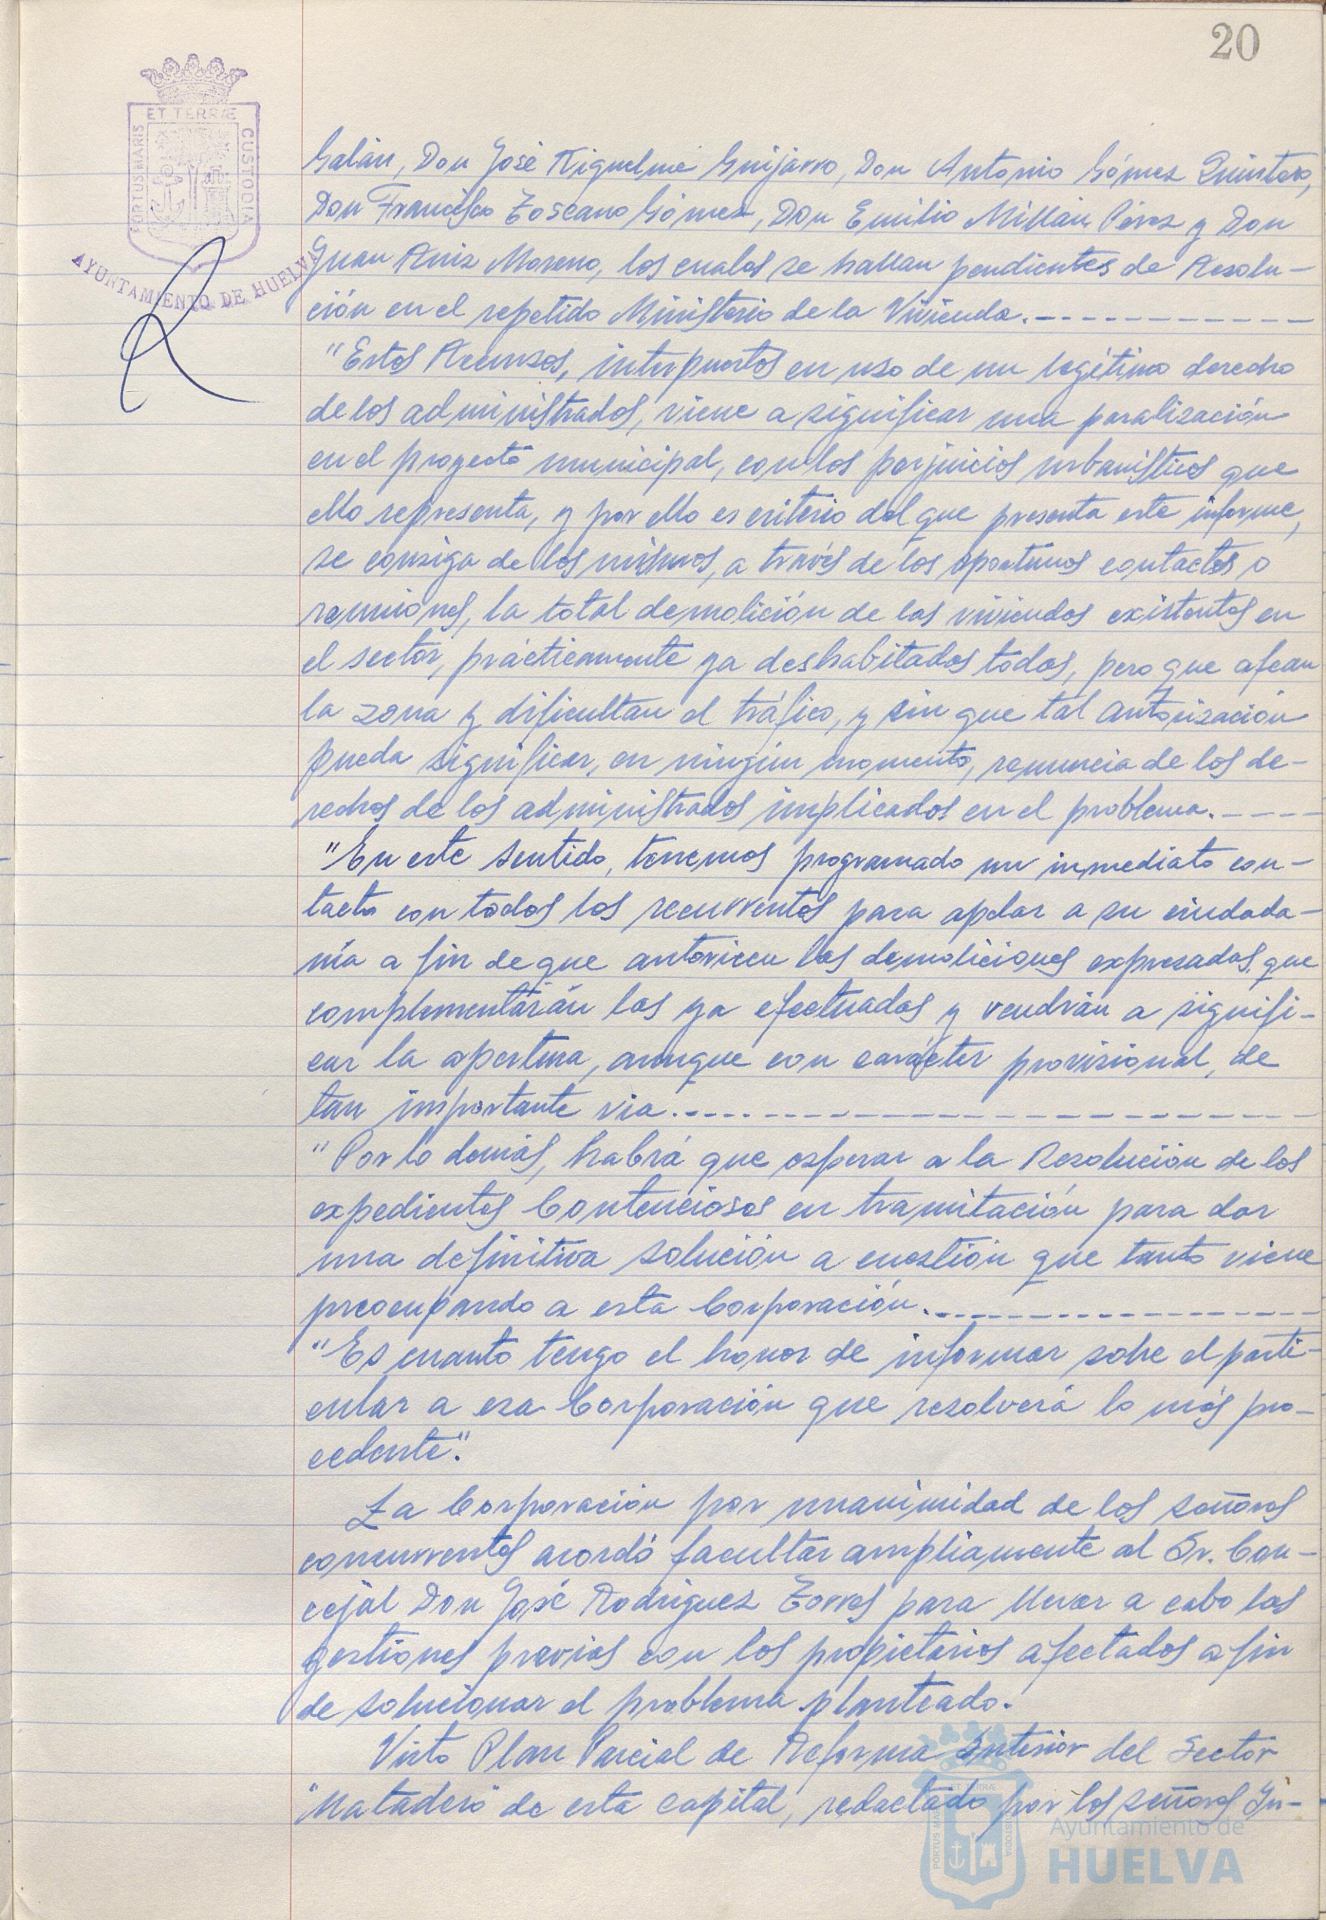 20
ET TERRÆ
PORTUS MARIS
CUSTODIA
AYUNTAMIENTO DE HUELVA
Galán, Don José Riquelme Guijarro, Don Antonio Gómez Quintero,
Don Francisco Toscano Gómez, Don Emilio Millán Pérez y Don
Juan Ruiz Moreno, los cuales se hallan pendientes de Resolu-
ción en el repetido Ministerio de la Vivienda.
"Estos Recursos, interpuestos en uso de un legítimo derecho
de los administrados, viene a significar una paralización
en el proyecto municipal, con los perjuicios urbanísticos que
ello representa, y por ello es criterio del que presenta este informe,
se consiga de los mismos, a través de los oportunos contactos o
reuniones, la total demolición de las viviendas existentes en
el sector, prácticamente ya deshabitadas todas, pero que afean
la zona y dificultan el tráfico, y sin que tal autorización
pueda significar, en ningún momento, renuncia de los de-
rechos de los administrados implicados en el problema.
"En este sentido, tenemos programado un inmediato con-
tacto con todos los recurrentes para apelar a su ciudada-
nía a fin de que autoricen las demoliciones expresadas, que
complementarán las ya efectuadas y vendrían a signifi-
car la apertura, aunque con carácter provisional, de
tan importante via.
"Por lo demás, habrá que esperar a la Resolución de los
expedientes Contenciosos en tramitación para dar
una definitiva solución a cuestión que tanto viene
preocupando a esta Corporación.
"Es cuanto tengo el honor de informar sobre el parti-
cular a esa Corporación que resolverá lo más pro-
cedente".
La Corporación por unanimidad de los señores
concurrentes acordó facultar ampliamente al Sr. Con-
cejal Don José Rodríguez Torres para llevar a cabo las
gestiones previas con los propietarios afectados a fin
de solucionar el problema planteado.
Visto Plan Parcial de Reforma Interior del Sector
"Matadero" de esta capital, redactado por los señores In-
Ayuntamiento de
HUELVA